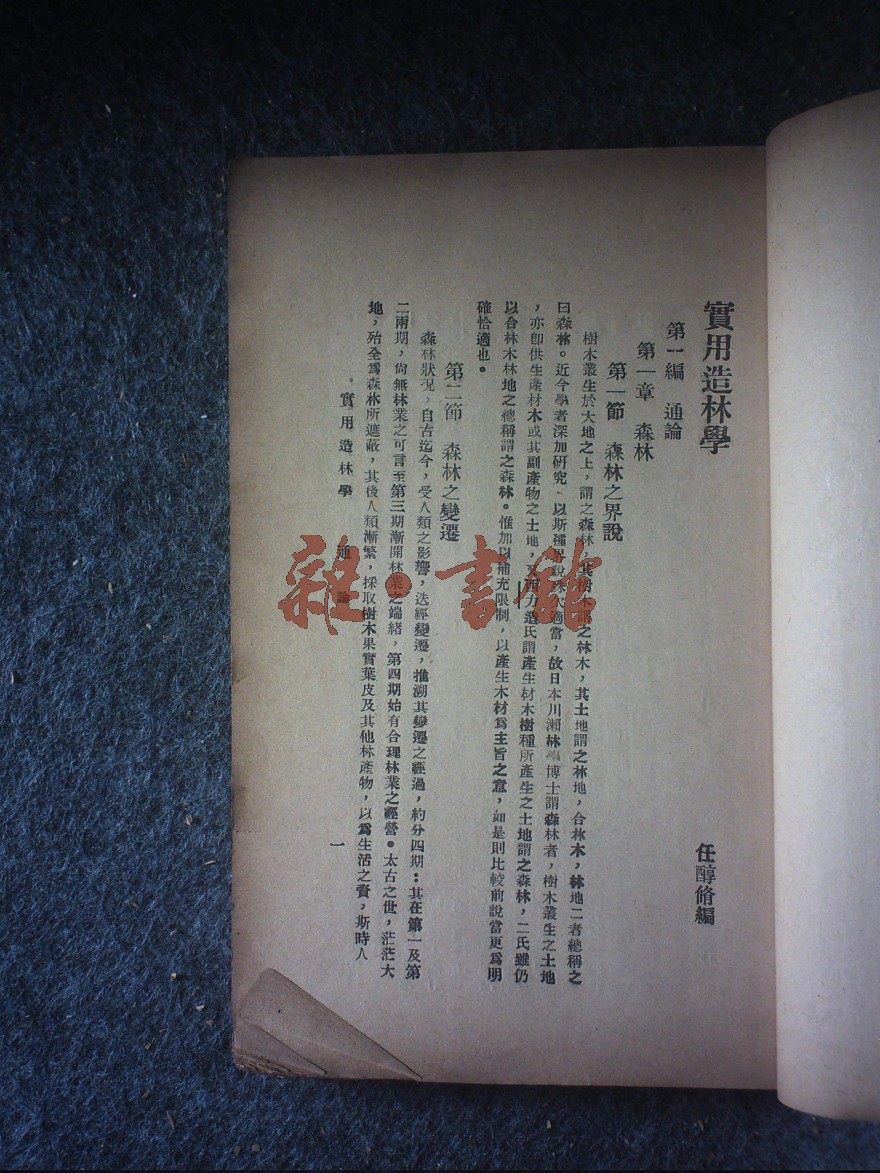 實用造林學
任醇修編
第一編 通論
第一章 森林
第一節 森林之界說
樹木叢生於大地之上，謂之森林，其樹木謂之林木，其土地謂之林地，合林木，林地二者總稱之
曰森林。近今學者深加研究、以斯種界說 適當，故日本川瀨林學博士謂森林者，樹木叢生之土地
，亦即供生產材木或其副產物之土地， 氏謂產生材木樹種所產生之土地謂之森林，二氏雖仍
以合林木林地之總稱謂之森林。惟加以補充限制，以產生木材爲主旨之意，如是則比較前說當更爲明
確恰適也。
第二節 森林之變遷
森林狀況，自古迄今，受人類之影響，迭經變遷，推溯其變遷之經過，約分四期：其在第一及第
二兩期，尚無林業之可言至第三期漸開林業之端緒，第四期始有合理林業之經營。太古之世，茫茫大
地，殆全爲森林所遮蔽，其後人類漸繁，採取樹木果實葉皮及其他林產物，以爲生活之資，斯時人
實用造林學 通論
一
雜·書館